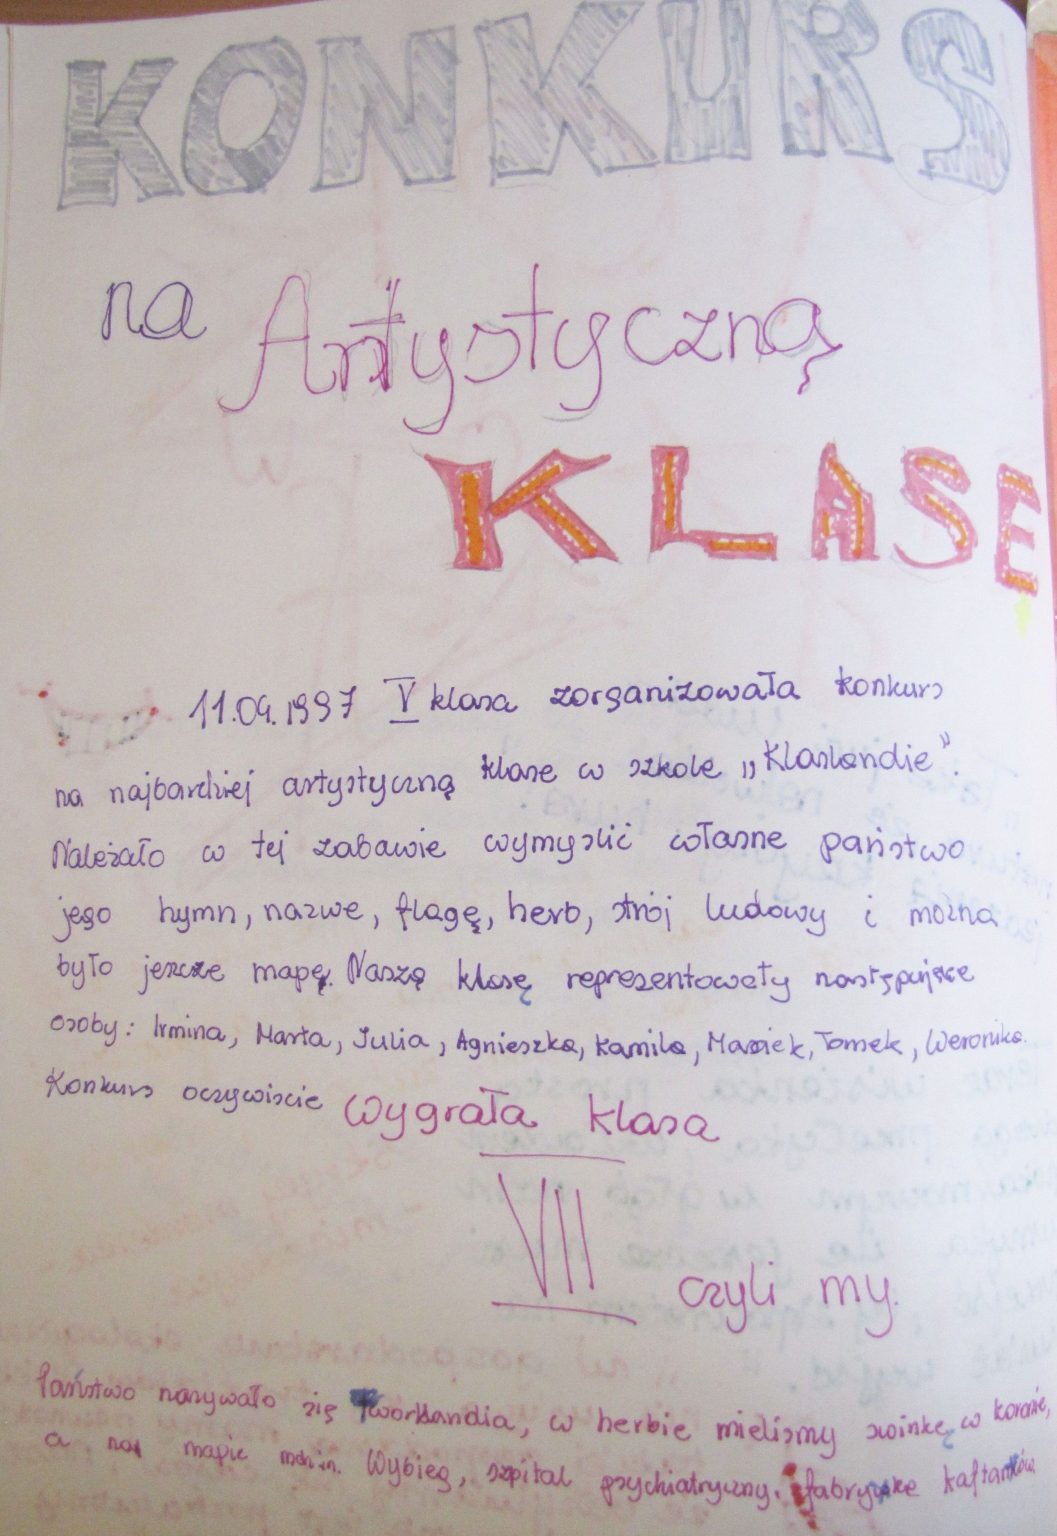 KONKURS
na Artystyczną
KLASĘ
11.09.1997 V klasa zorganizowała konkurs
na najbardziej artystyczną klase w szkole „Klaslandie".
Należało w tej zabawie wymyslić własne państwo
jego hymn, nazwe, flagę, herb, strój ludowy i można
było jeszcze mapę. Naszą klasę reprezentowały następujące
osoby: Irmina, Marta, Julia, Agnieszka, Kamila, Maciek, Tomek, Weronika.
Konkurs oczywiscie wygrała klasa
VII czyli my.
Państwo nazywało się Tworklandia, w herbie mielismy swinkę w koronie,
a na mapie m.in. Wybieg, szpital psychiatryczny, fabryke kaftaników